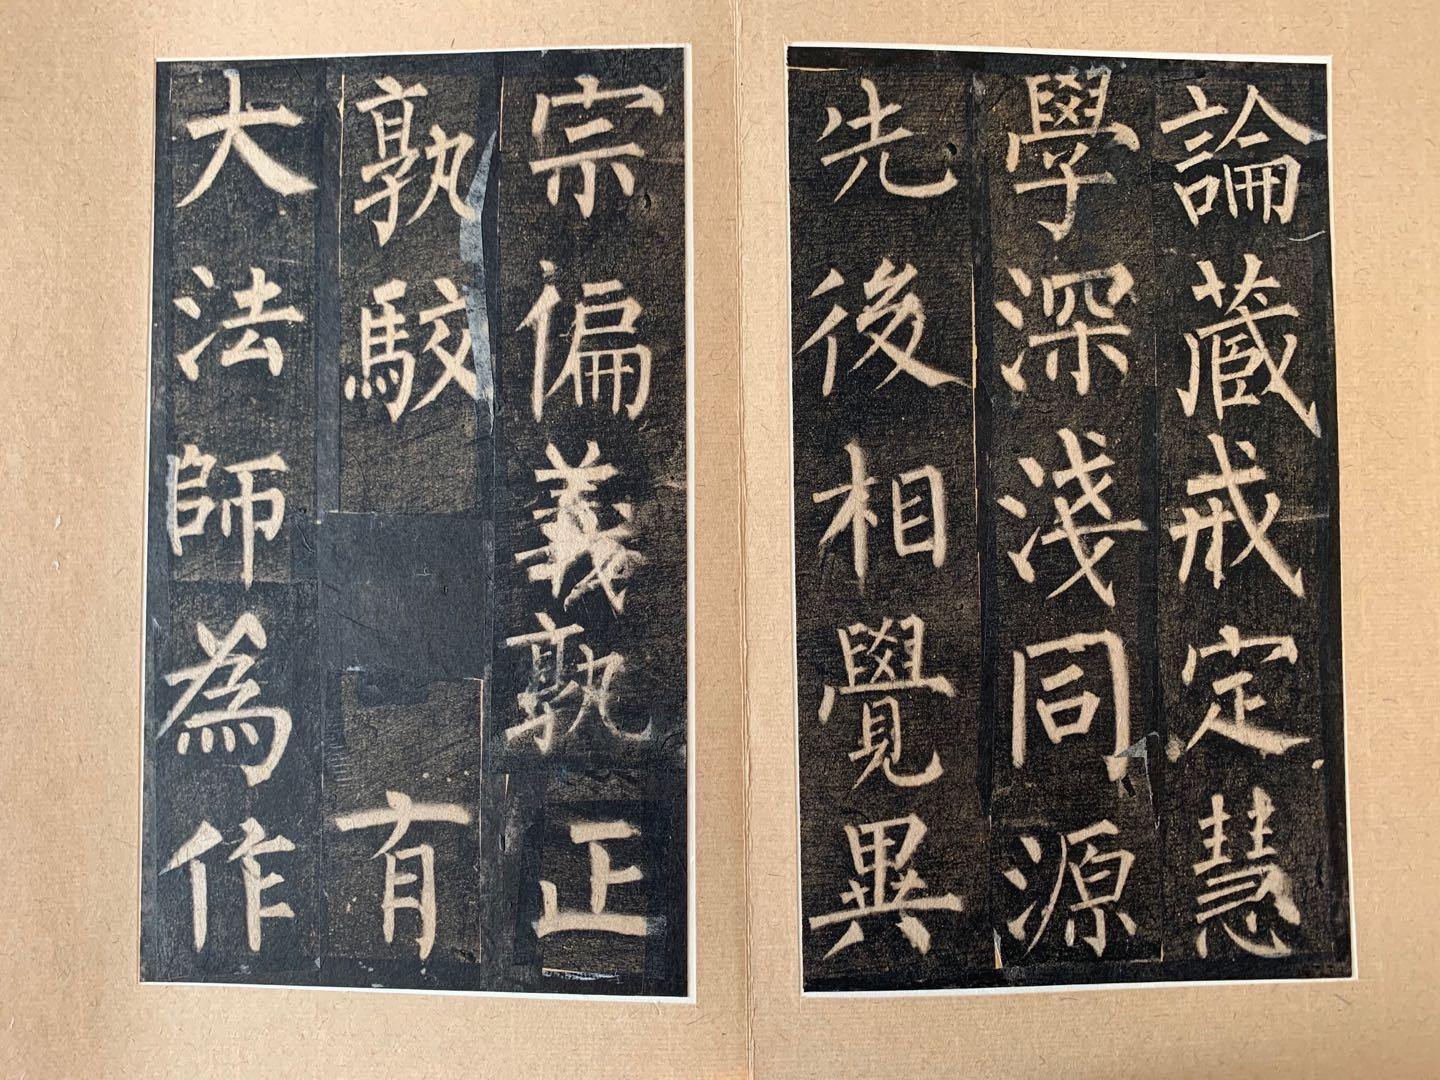 論蔵戒定慧
學深淺同源
先後相覺異
宗偏義孰正
孰駮 有
大法師為作